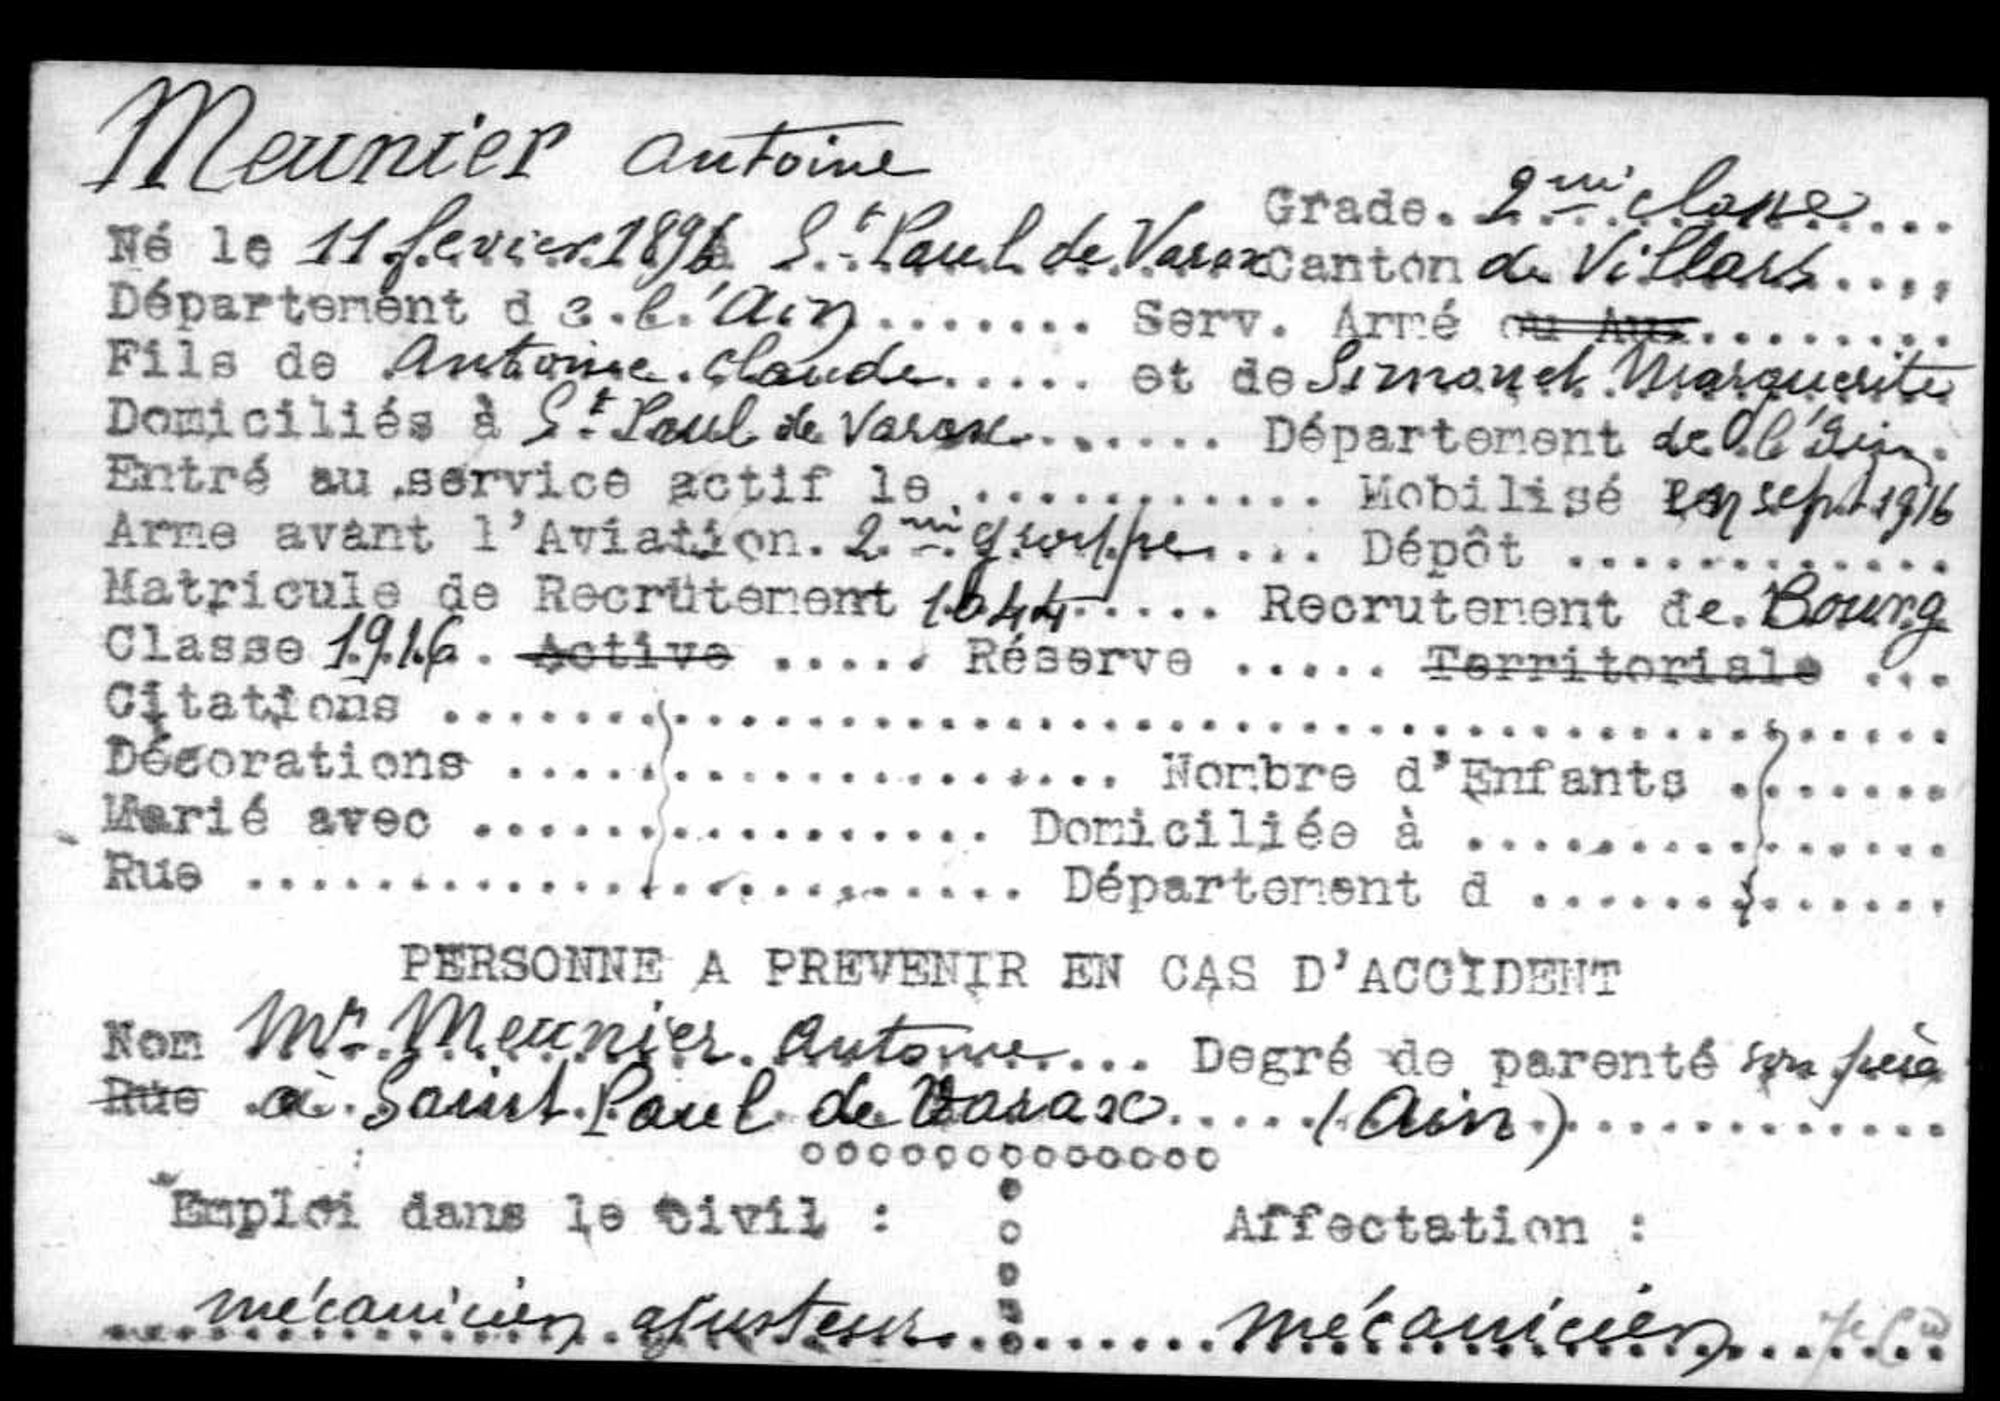 Meunier Antoine
Grade. 2me classe....
Né le 11 fevrier 1896 à St Paul de Varax Canton de Villars....
Département d e l'Ain....... Serv. Armé ou Aux........
Fils de Antoine Claude..... et de Simonet Marguerite
Domiciliés à St Paul de Varax....... Département de l'Ain.
Entré au service actif le ............ Mobilisé en sept 1916
Arme avant l'Aviation. 2me grouppe.... Dépôt ............
Matricule de Recrutement 1044..... Recrutement de. Bourg
Classe 1916. Active ..... Réserve ..... Territoriale ...
Citations ................................................
Décorations ................... Nombre d'Enfants .......
Marié avec ................ Domiciliée à ...............
Rue ........................ Département d .............
PERSONNE A PREVENIR EN CAS D'ACCIDENT
Nom Mr. Meunier Antoine... Degré de parenté son père
Rue à Saint Paul de Varax..... (Ain)............
ooooooooooooo
Emploi dans le civil : Affectation :
mécanicien ajusteur mécanicien